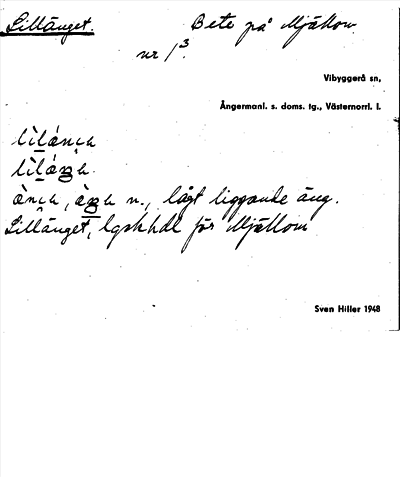 Lillänget.
Bete på Mjällom
nr 1³.
Vibyggerå sn,
Ångermanl. s. doms. tg., Västernorrl. l.
n., lågt liggande äng.
Lillänget, lgskhdl för Mjällom
Sven Hiller 1948